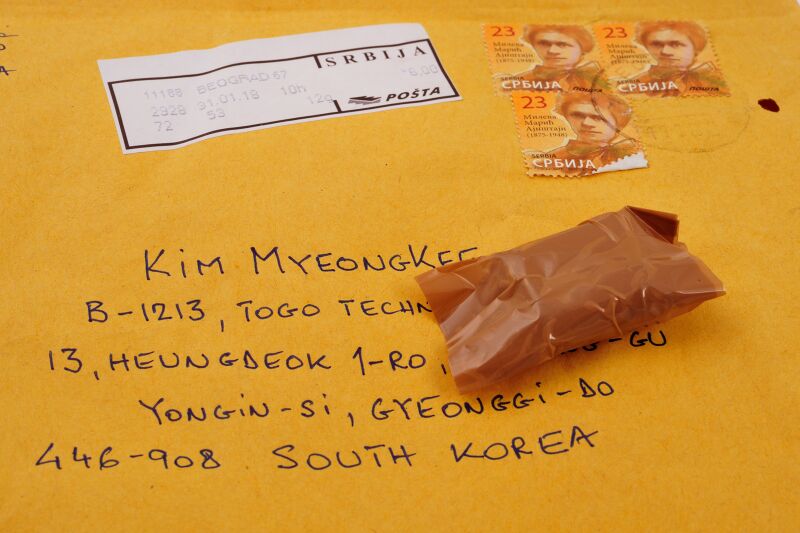 SRBIJA
11188 BEOGRAD 67
2928 31.01.18 10h
72 53 12g
*6,00
POŠTA
23
Милева
Марић
Ајнштајн
(1875-1948)
SERBIA
СРБИЈА
23
Милева
Марић
Ајнштајн
(1875-1948)
СРБИЈА
ПОШТА
23
Милева
Марић
Ајнштајн
(1875-1948)
SERBIA
СРБИЈА
KIM MYEONGKEE
B-1213, TOGO TECHN
13, HEUNGDEOK 1-RO, -GU
YONGIN-SI, GYEONGGI-DO
446-908 SOUTH KOREA